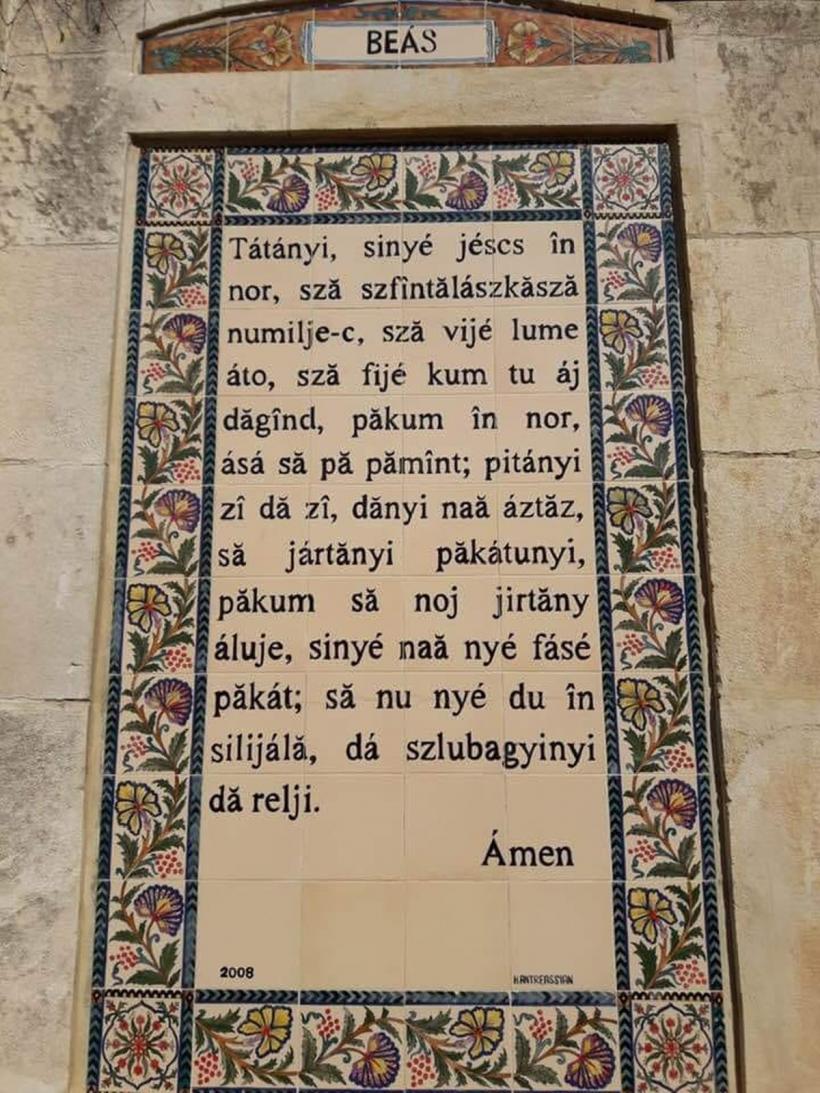 BEÁS
Tátányi, sinyé jéscs în
nor, sză szfîntălászkăsză
numilje-c, sză vijé lume
áto, sză fijé kum tu áj
dăgînd, păkum în nor,
ásá să pă pămînt; pitányi
zî dă zî, dănyi naă áztăz,
să jártănyi păkátunyi,
păkum să noj jirtăny
áluje, sinyé naă nyé fásé
păkát; să nu nyé du în
silijálă, dá szlubagyinyi
dă relji.
Ámen
2008
HANTREASSIAN